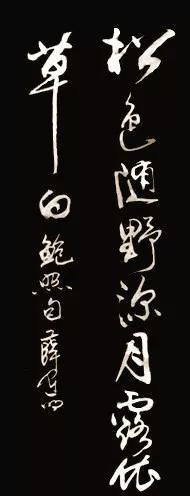 松色随野深月露依
草白鮑照句薛